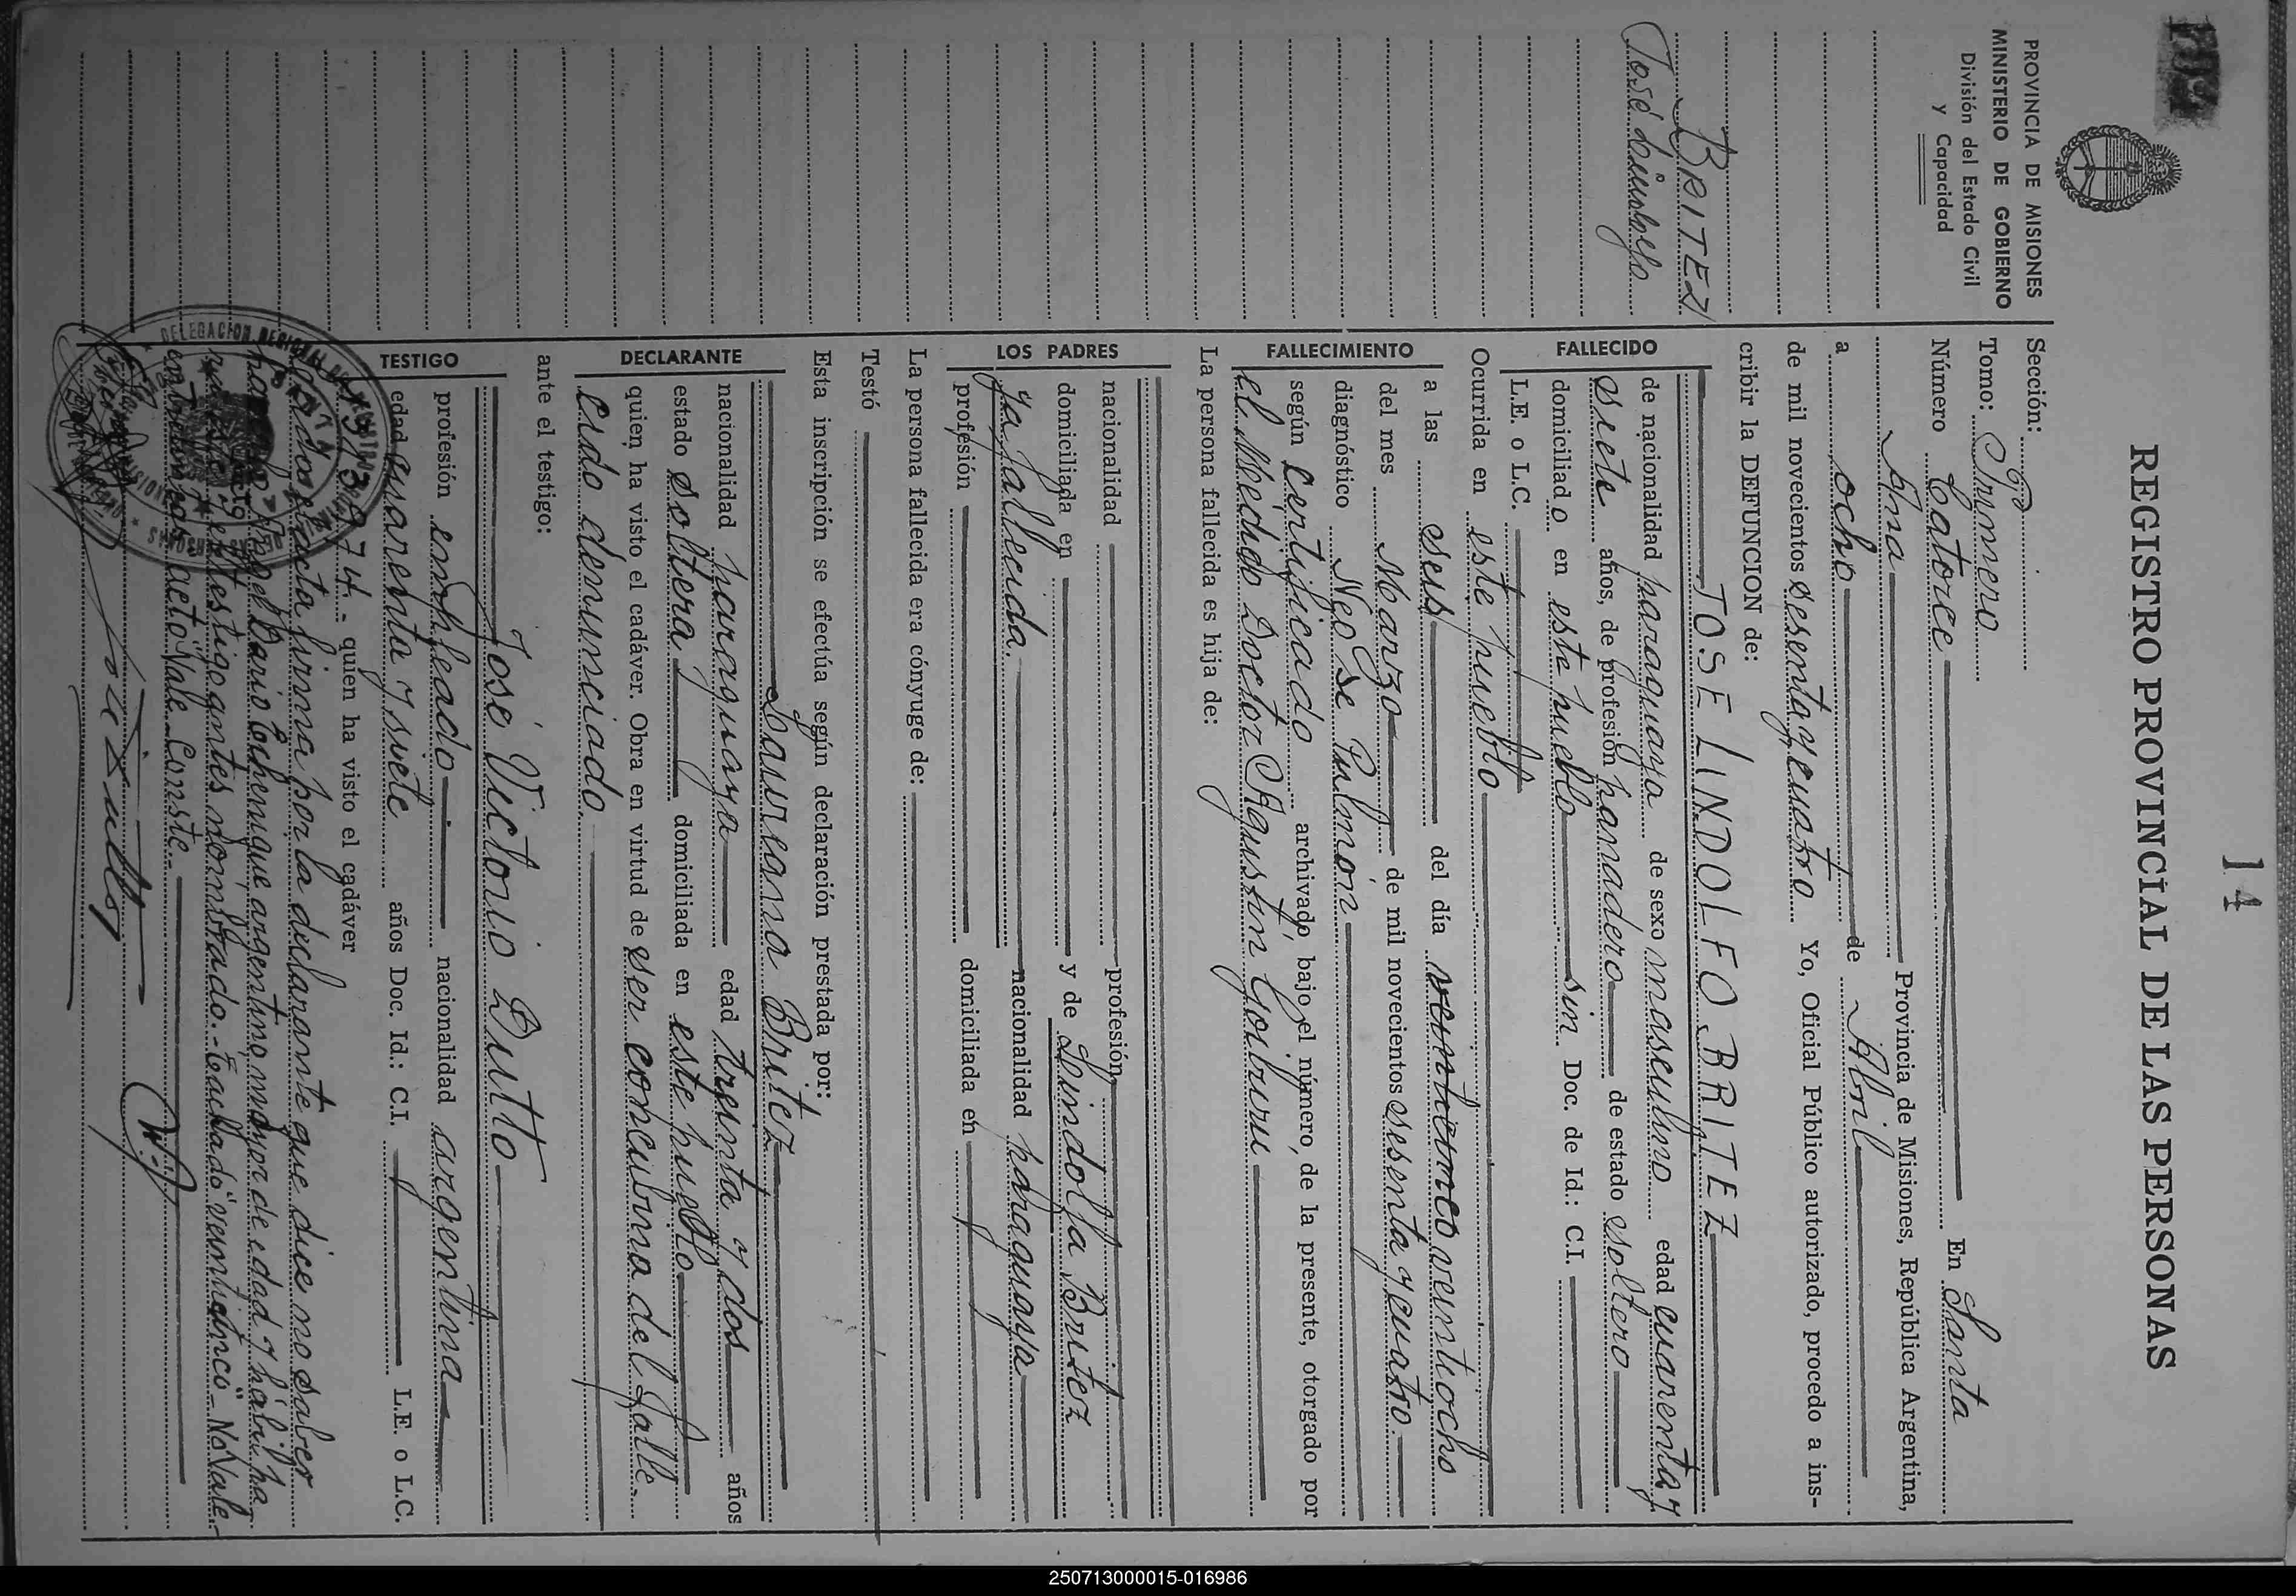 14
REGISTRO PROVINCIAL DE LAS PERSONAS
PROVINCIA DE MISIONES
MINISTERIO DE GOBIERNO
División del Estado Civil
y Capacidad
BRITEZ
José Lindolfo
Sección:
Tomo: Primero
Número Catorce En Santa
Ana Provincia de Misiones, República Argentina,
a ocho de Abril
de mil novecientos sesenta y cuatro Yo, Oficial Público autorizado, procedo a ins-
cribir la DEFUNCION de:
FALLECIDO
JOSE LINDOLFO BRITEZ
de nacionalidad paraguaya de sexo masculino edad cuarenta y
siete años, de profesión panadero de estado soltero
domiciliado en este pueblo sin Doc. de Id.: C.I.
L.E. o L.C.
Ocurrida en este pueblo
FALLECIMIENTO
a las seis del día veinticinco veintiocho
del mes Marzo de mil novecientos sesenta y cuatro.
diagnóstico Neo de Pulmón
según certificado archivado, bajo el número, de la presente, otorgado por
el Médico Doctor Agustin Goiburu
La persona fallecida es hija de:
LOS PADRES
nacionalidad profesión
domiciliada en y de Lindolfa Britez
ya fallecida. nacionalidad paraguaya
profesión domiciliada en
La persona fallecida era cónyuge de:
Testó
Esta inscripción se efectúa según declaración prestada por:
DECLARANTE
Laureana Britez
nacionalidad paraguaya edad treinta y dos años
estado soltera domiciliada en este pueblo
quien ha visto el cadáver. Obra en virtud de ser concubina del falle-
cido denunciado.
ante el testigo:
TESTIGO
José Victorio Dutto
profesión empleado nacionalidad argentina
edad cuarenta y siete años Doc. Id.: C.I. L.E. o L.C.
974.- quien ha visto el cadáver
acta firma por la declarante que dice no saber
Dario Echenique, argentino, mayor de edad y hábil, ha
testigo antes nombrado.- Teachado "veinticinco" - No Vale.-
entrelineas acto Vale. Conste.
DELEGACION REGIONAL